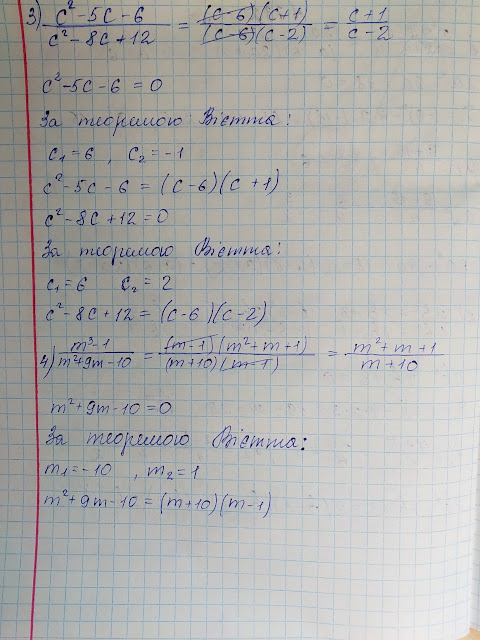 3) (c² - 5c - 6)/(c² - 8c + 12) = ((c-6)(c+1))/((c-6)(c-2)) = (c+1)/(c-2)
c² - 5c - 6 = 0
За теоремою Вієтта:
c₁ = 6 , c₂ = -1
c² - 5c - 6 = (c-6)(c+1)
c² - 8c + 12 = 0
За теоремою Вієтта:
c₁ = 6 c₂ = 2
c² - 8c + 12 = (c-6)(c-2)
4) (m³ - 1)/(m² + 9m - 10) = ((m-1)(m² + m + 1))/((m+10)(m-1)) = (m² + m + 1)/(m+10)
m² + 9m - 10 = 0
За теоремою Вієтта:
m₁ = -10 , m₂ = 1
m² + 9m - 10 = (m+10)(m-1)